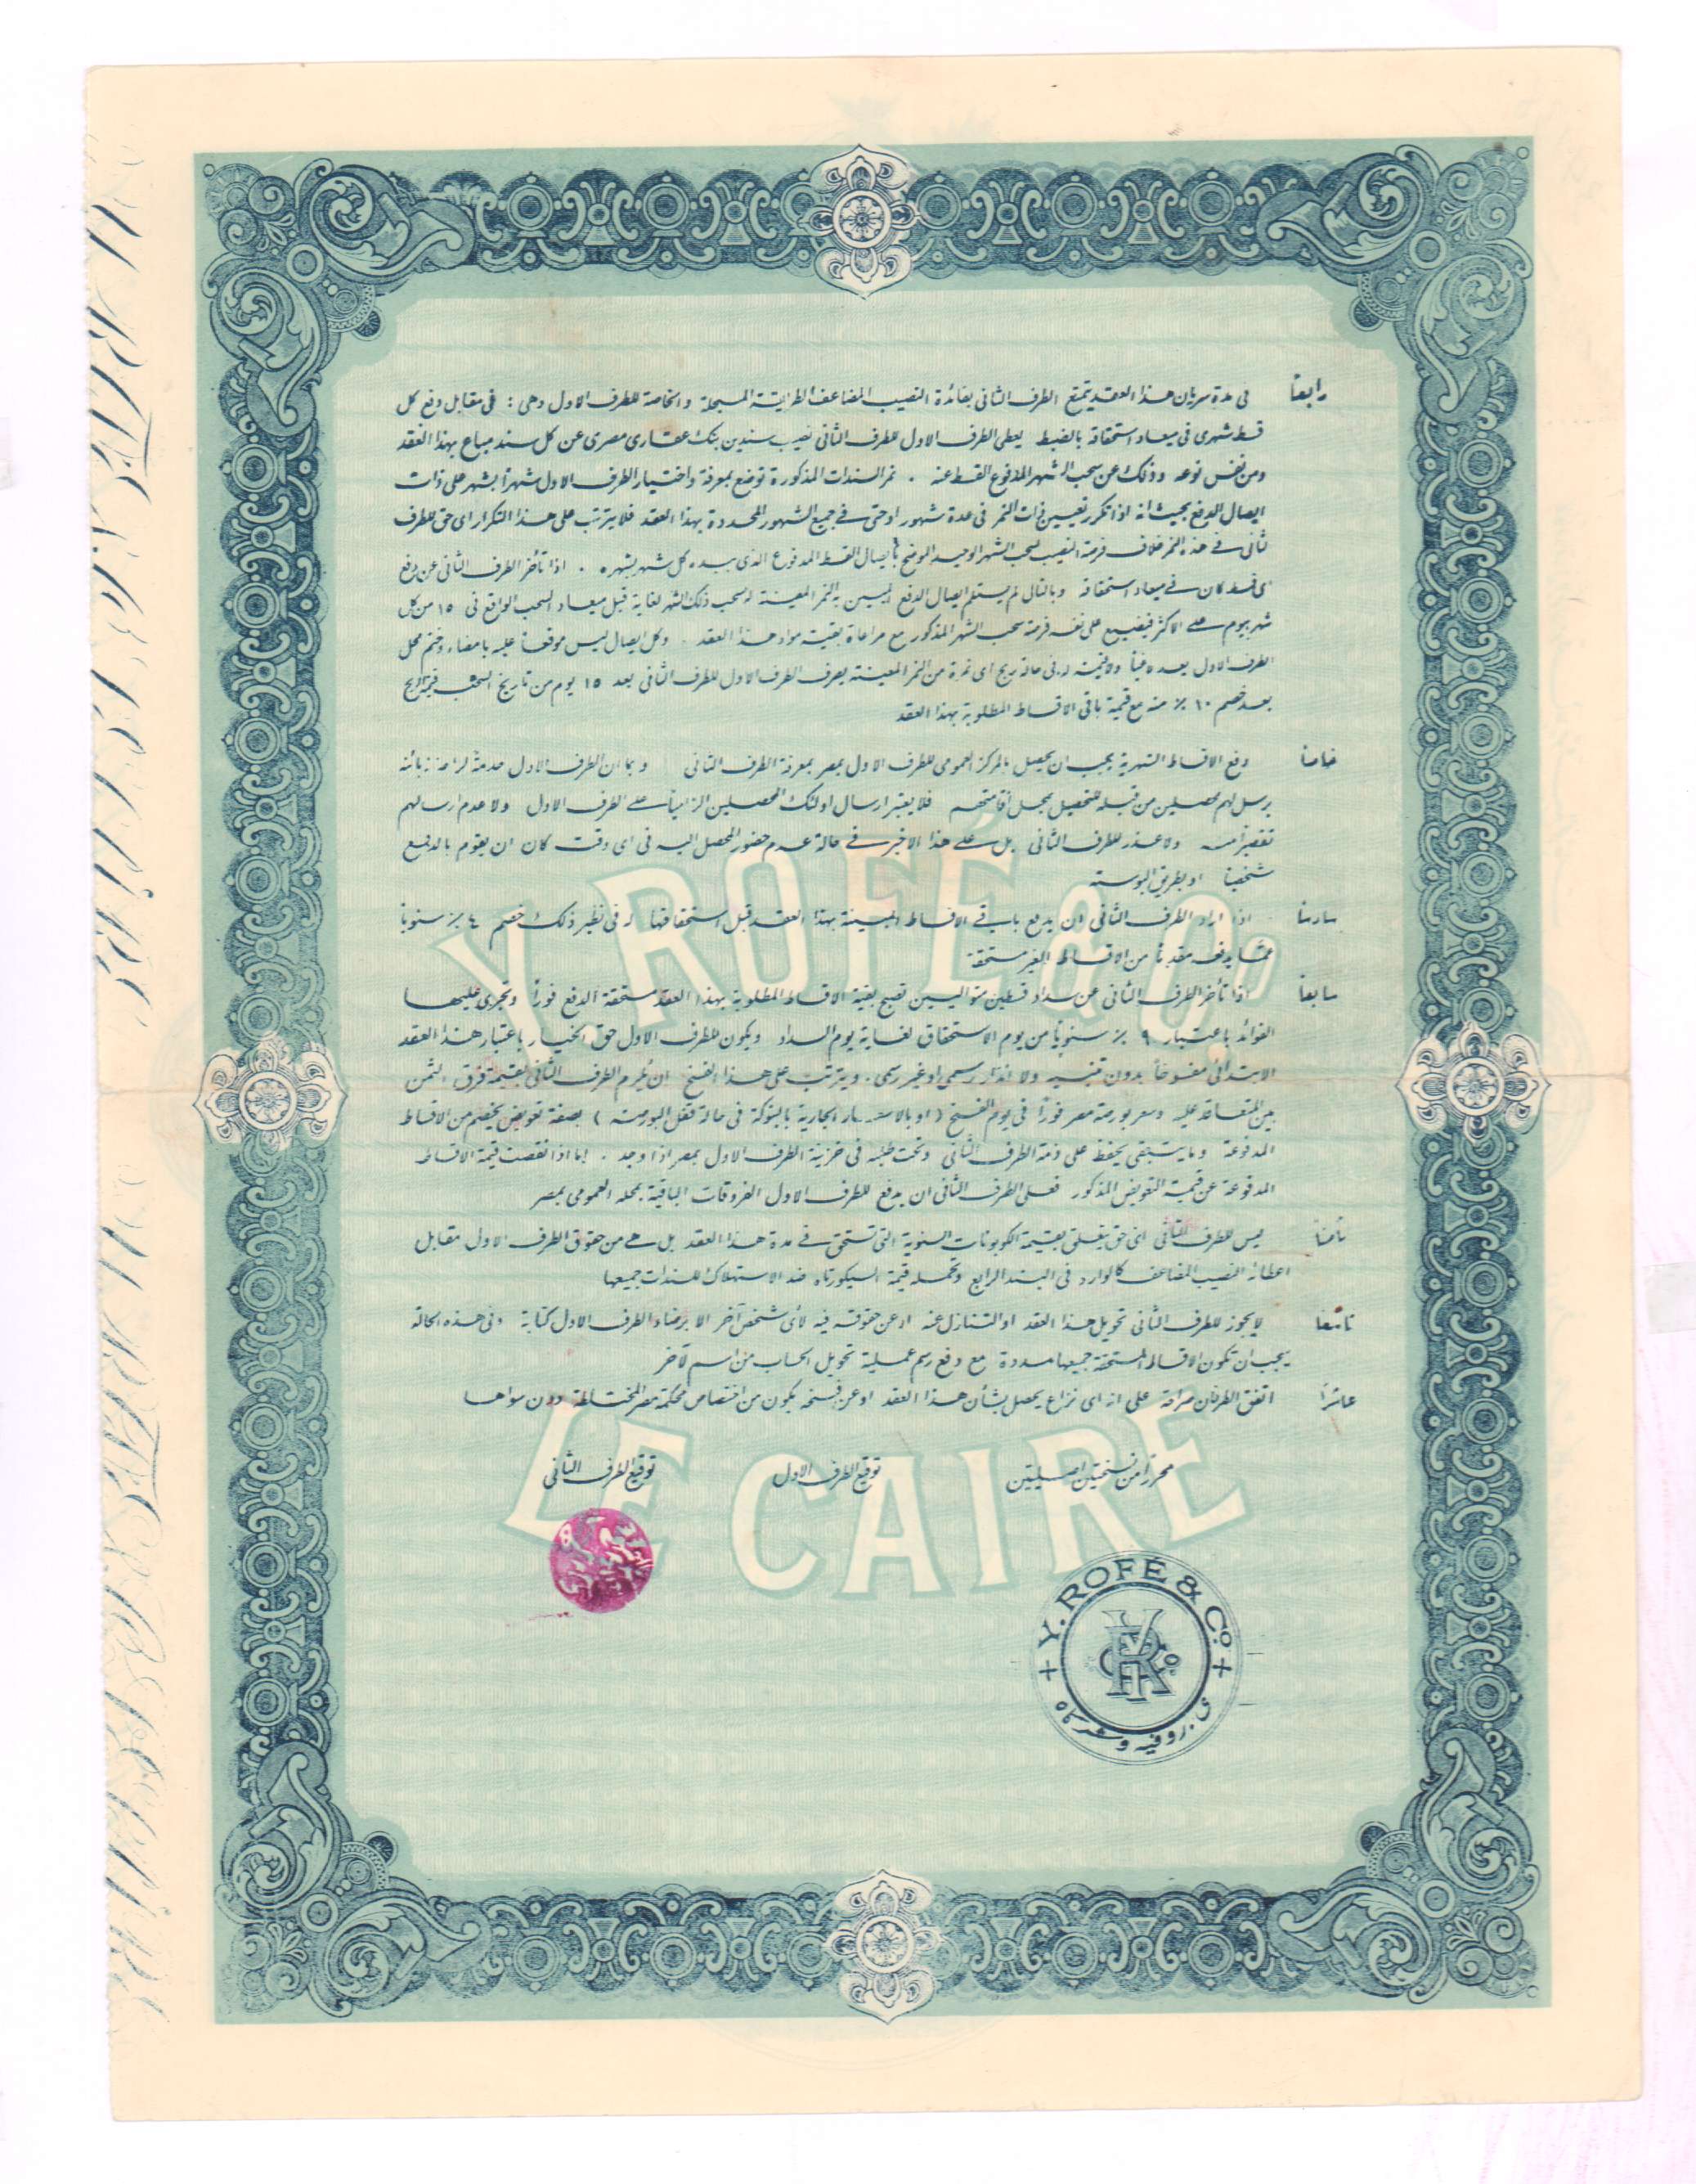 رابعاً في مدة سريان هذا العقد يتمتع الطرف الثاني بفائدة النصيب المضاعف الطريقة المسجلة والخاصة للطرف الاول وهى : في مقابل دفع كل
قسط شهرى في ميعاد استحقاقه بالضبط يعطى الطرف الاول للطرف الثاني نصيب سندين بنك عقارى مصرى عن كل سند مباع بهذا العقد
ومن نفس نوعه وذلك عن سحب الشهر المدفوع القسط عنه . نمر السندات المذكورة توضع بمعرفة واختيار الطرف الاول شهراً بشهر على ذات
ايصال الدفع بحيث انه اذا تكرر تعيين ذات النمر في مدة شهور او حتى في جميع الشهور المحددة بهذا العقد فلا يترتب على هذا التكرار اى حق للطرف
ثانى في هذه النمر خلاف فرصة النصيب لسحب الشهر الوحيد الموضح بايصال القسط المدفوع الذى بيده كل شهر بشهره . اذا تأخر الطرف الثاني عن دفع
ى قسط كان في ميعاد استحقاقه وبالتالى لم يستلم ايصال الدفع المبين به النمر المعينة له لسحب ذلك الشهر لغاية قبل ميعاد السحب الواقع في ١٥ من كل
شهر بيوم على الاكثر فيضيع على نفسه فرصة سحب الشهر المذكور مع مراعاة بقية مواد هذا العقد . وكل ايصال ليس موقعاً عليه بامضاء وختم محل
الطرف الاول يعد لاغياً ولا قيمة له . في حالة ربح اى نمرة من النمر المعينة يصرف الطرف الاول للطرف الثاني بعد ١٥ يوم من تاريخ السحب قيمة الربح
بعد خصم ١٠ ٪ منه مع قيمة باقى الاقساط المطلوبة بهذا العقد
خامساً دفع الاقساط الشهرية يجب ان يحصل بالمركز العمومى للطرف الاول بمصر بمعرفة الطرف الثاني وبما ان الطرف الاول خدمة لراحة زبائنه
يرسل لهم محصلين من قبله للتحصيل بمحل اقامتهم فلا يعتبر ارسال اولئك المحصلين الزامياً على الطرف الاول ولا عدم ارسالهم
تقصيراً منه ولا عذر للطرف الثاني بل على هذا الاخير في حالة عدم حضور المحصل اليه في اى وقت كان ان يقوم بالدفع
شخصياً او بطريق البوستة
سادساً اذا اراد الطرف الثاني ان يدفع باقى الاقساط المبينة بهذا العقد قبل استحقاقها له في نظير ذلك خصم ٤ ٪ سنوياً
عما يدفعه مقدماً من الاقساط الغير مستحقة
سابعاً اذا تأخر الطرف الثاني عن سداد قسطين متواليين تصبح بقية الاقساط المطلوبة بهذا العقد مستحقة الدفع فوراً وتجرى عليها
الفوائد باعتبار ٩ ٪ سنوياً من يوم الاستحقاق لغاية يوم السداد ويكون للطرف الاول حق الخيار باعتبار هذا العقد
الابتدائى مفسوخاً بدون تنبيه ولا انذار رسمى او غير رسمى . ويترتب على هذا الفسخ ان يلزم الطرف الثاني بقيمة فرق الثمن
بين المتعاقد عليه وسعر بورصة مصر فوراً في يوم الفسخ ( او بالاسعار الجارية بالبنوكة في حالة قفل البورصة ) بصفة تعويض يخصم من الاقساط
المدفوعة وما يستبقى يحفظ على ذمة الطرف الثاني وتحت طلبه في خزينة الطرف الاول بمصر اذا وجد . اما اذا نقصت قيمة الاقساط
المدفوعة عن قيمة التعويض المذكور فعلى الطرف الثاني ان يدفع للطرف الاول الفروقات الباقية بمحله العمومى بمصر
ثامناً ليس للطرف الثاني اى حق يتعلق بقيمة الكوبونات السنوية التى تستحق في مدة هذا العقد بل هى من حقوق الطرف الاول مقابل
اعطائه النصيب المضاعف كالوارد في البند الرابع وتحمله قيمة السيكورتاه ضد الاستهلاك للسندات جميعها
تاسعاً لا يجوز للطرف الثاني تحويل هذا العقد او التنازل عنه او عن حقوقه فيه لأى شخص آخر الا برضاء الطرف الاول كتابة وفي هذه الحالة
يجب ان تكون الاقساط المستحقة جميعها مسددة مع دفع رسم عملية تحويل الحساب من اسم لآخر
عاشراً اتفق الطرفان صراحة على انه اى نزاع يحصل بشأن هذا العقد او عن فسخه يكون من اختصاص محكمة مصر المختلطة دون سواها
محرراً من نسختين اصليتين توقيع الطرف الاول توقيع الطرف الثاني
Y. ROFÉ & Co.
LE CAIRE
+ Y. ROFÉ & Co. +
ى. روفيه وشركاه